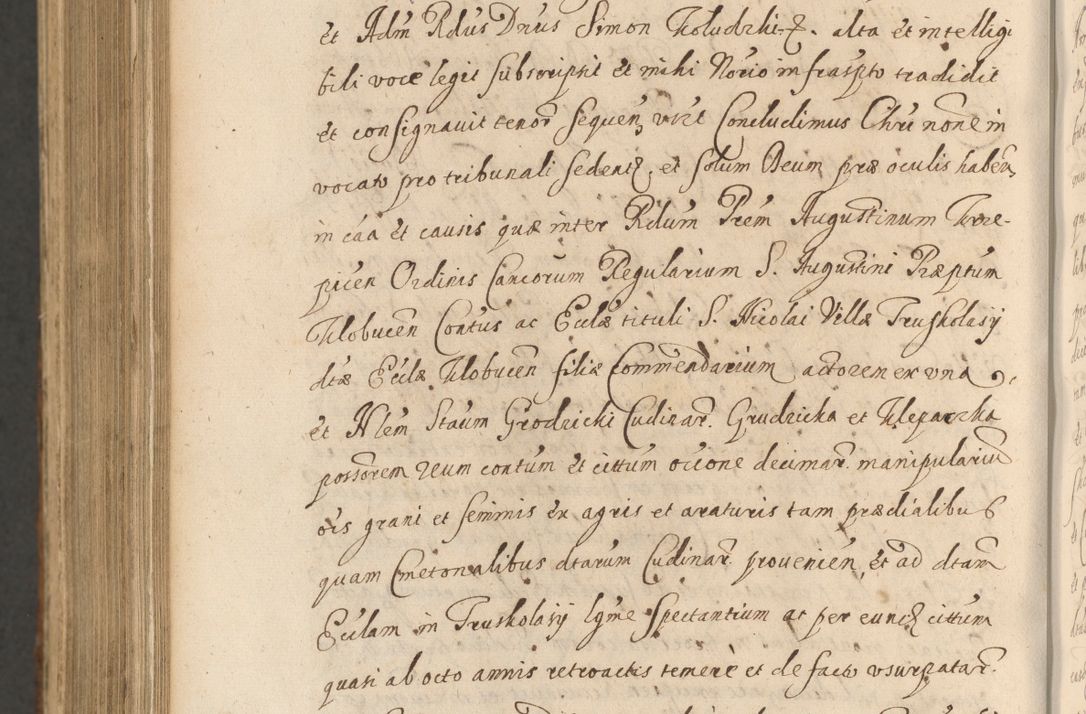 et Adm Rdus Dnus Simon Koludzki &. alta et intelligi
bili voce legit subscripsit et mihi Norio infrascpto tradidit
et consignavit tenor sequen vizt Concludimus Chri none in
vocato pro tribunali sedent, et solum Deum præ oculis haben
in caa et causis quæ inter Rdum Prem Augustinum Trze-
picen Ordinis Canorum Regularium S. Augustini Præptum
Klobucen Contus ac Eccłæ tituli S. Nicolai Villæ Truskolasÿ
dtæ Ecclæ Klobucen filiæ Commendarium actorem ex una
et Nlem Staum Grodzicki Cudinar. Grudzicka et Kleparzka
possorem reum contum et cittum occone decimar. manipulariu
ois grani et seminis ex agris et araturis tam prædialibus
quam Cmetonalibus dtarum Cudinar. provenien, et ad dtam
Ecclam in Truskolasÿ lgme spectantium ac per eund cittum
quasi ab octo annis retroactis temere et de facto vsurpatar.